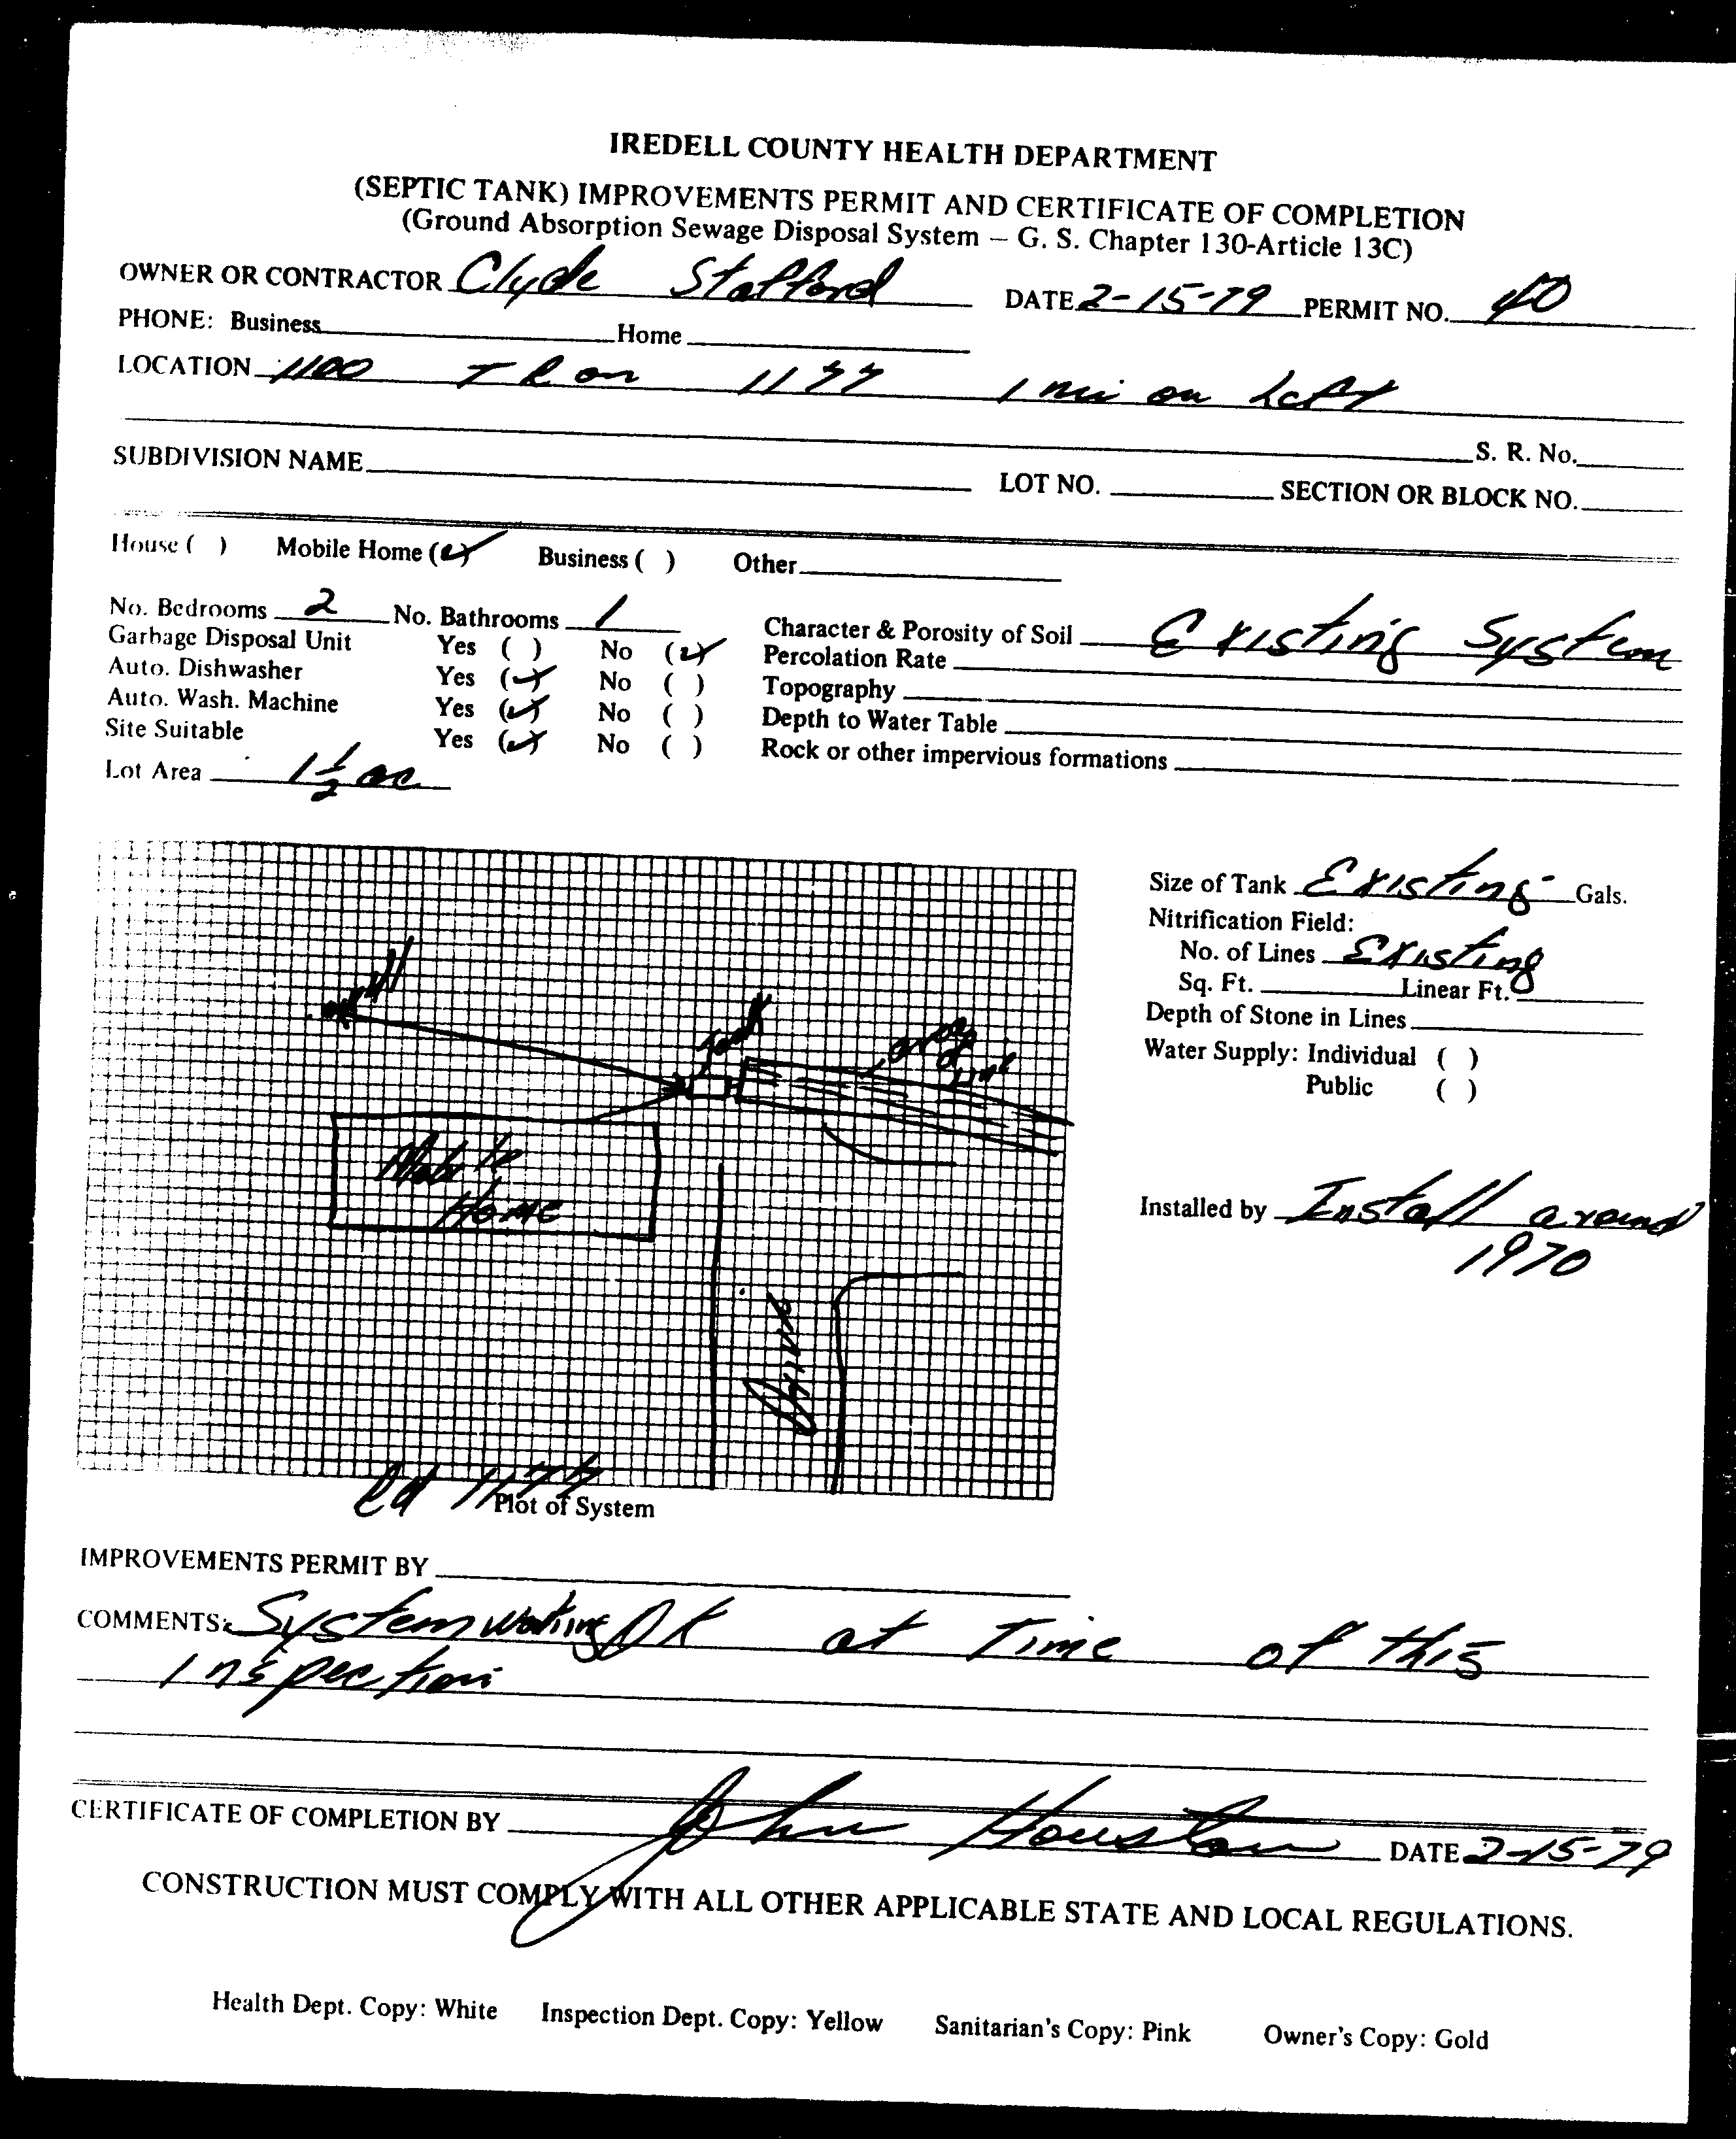 IREDELL COUNTY HEALTH DEPARTMENT
(SEPTIC TANK) IMPROVEMENTS PERMIT AND CERTIFICATE OF COMPLETION
(Ground Absorption Sewage Disposal System – G. S. Chapter 130-Article 13C)
OWNER OR CONTRACTOR Clyde Stafford DATE 2-15-79 PERMIT NO. 40
PHONE: Business Home
LOCATION 1100 T R on 1177 1 mi on Left
S. R. No.
SUBDIVISION NAME LOT NO. SECTION OR BLOCK NO.
House ( ) Mobile Home (✓) Business ( ) Other
No. Bedrooms 2 No. Bathrooms 1 Character & Porosity of Soil Existing System
Garbage Disposal Unit Yes ( ) No (✓) Percolation Rate
Auto. Dishwasher Yes (✓) No ( ) Topography
Auto. Wash. Machine Yes (✓) No ( ) Depth to Water Table
Site Suitable Yes (✓) No ( ) Rock or other impervious formations
Lot Area 1 1/2 ac
Size of Tank Existing Gals.
Nitrification Field:
No. of Lines Existing
Sq. Ft. Linear Ft.
Depth of Stone in Lines
Water Supply: Individual ( )
Public ( )
Installed by Install around
1970
well
Tank
area
of
line
Mobile
Home
Drive
Rd 1177
Plot of System
IMPROVEMENTS PERMIT BY
COMMENTS: System working OK at Time of this
Inspection
CERTIFICATE OF COMPLETION BY John Houston DATE 2-15-79
CONSTRUCTION MUST COMPLY WITH ALL OTHER APPLICABLE STATE AND LOCAL REGULATIONS.
Health Dept. Copy: White Inspection Dept. Copy: Yellow Sanitarian's Copy: Pink Owner's Copy: Gold